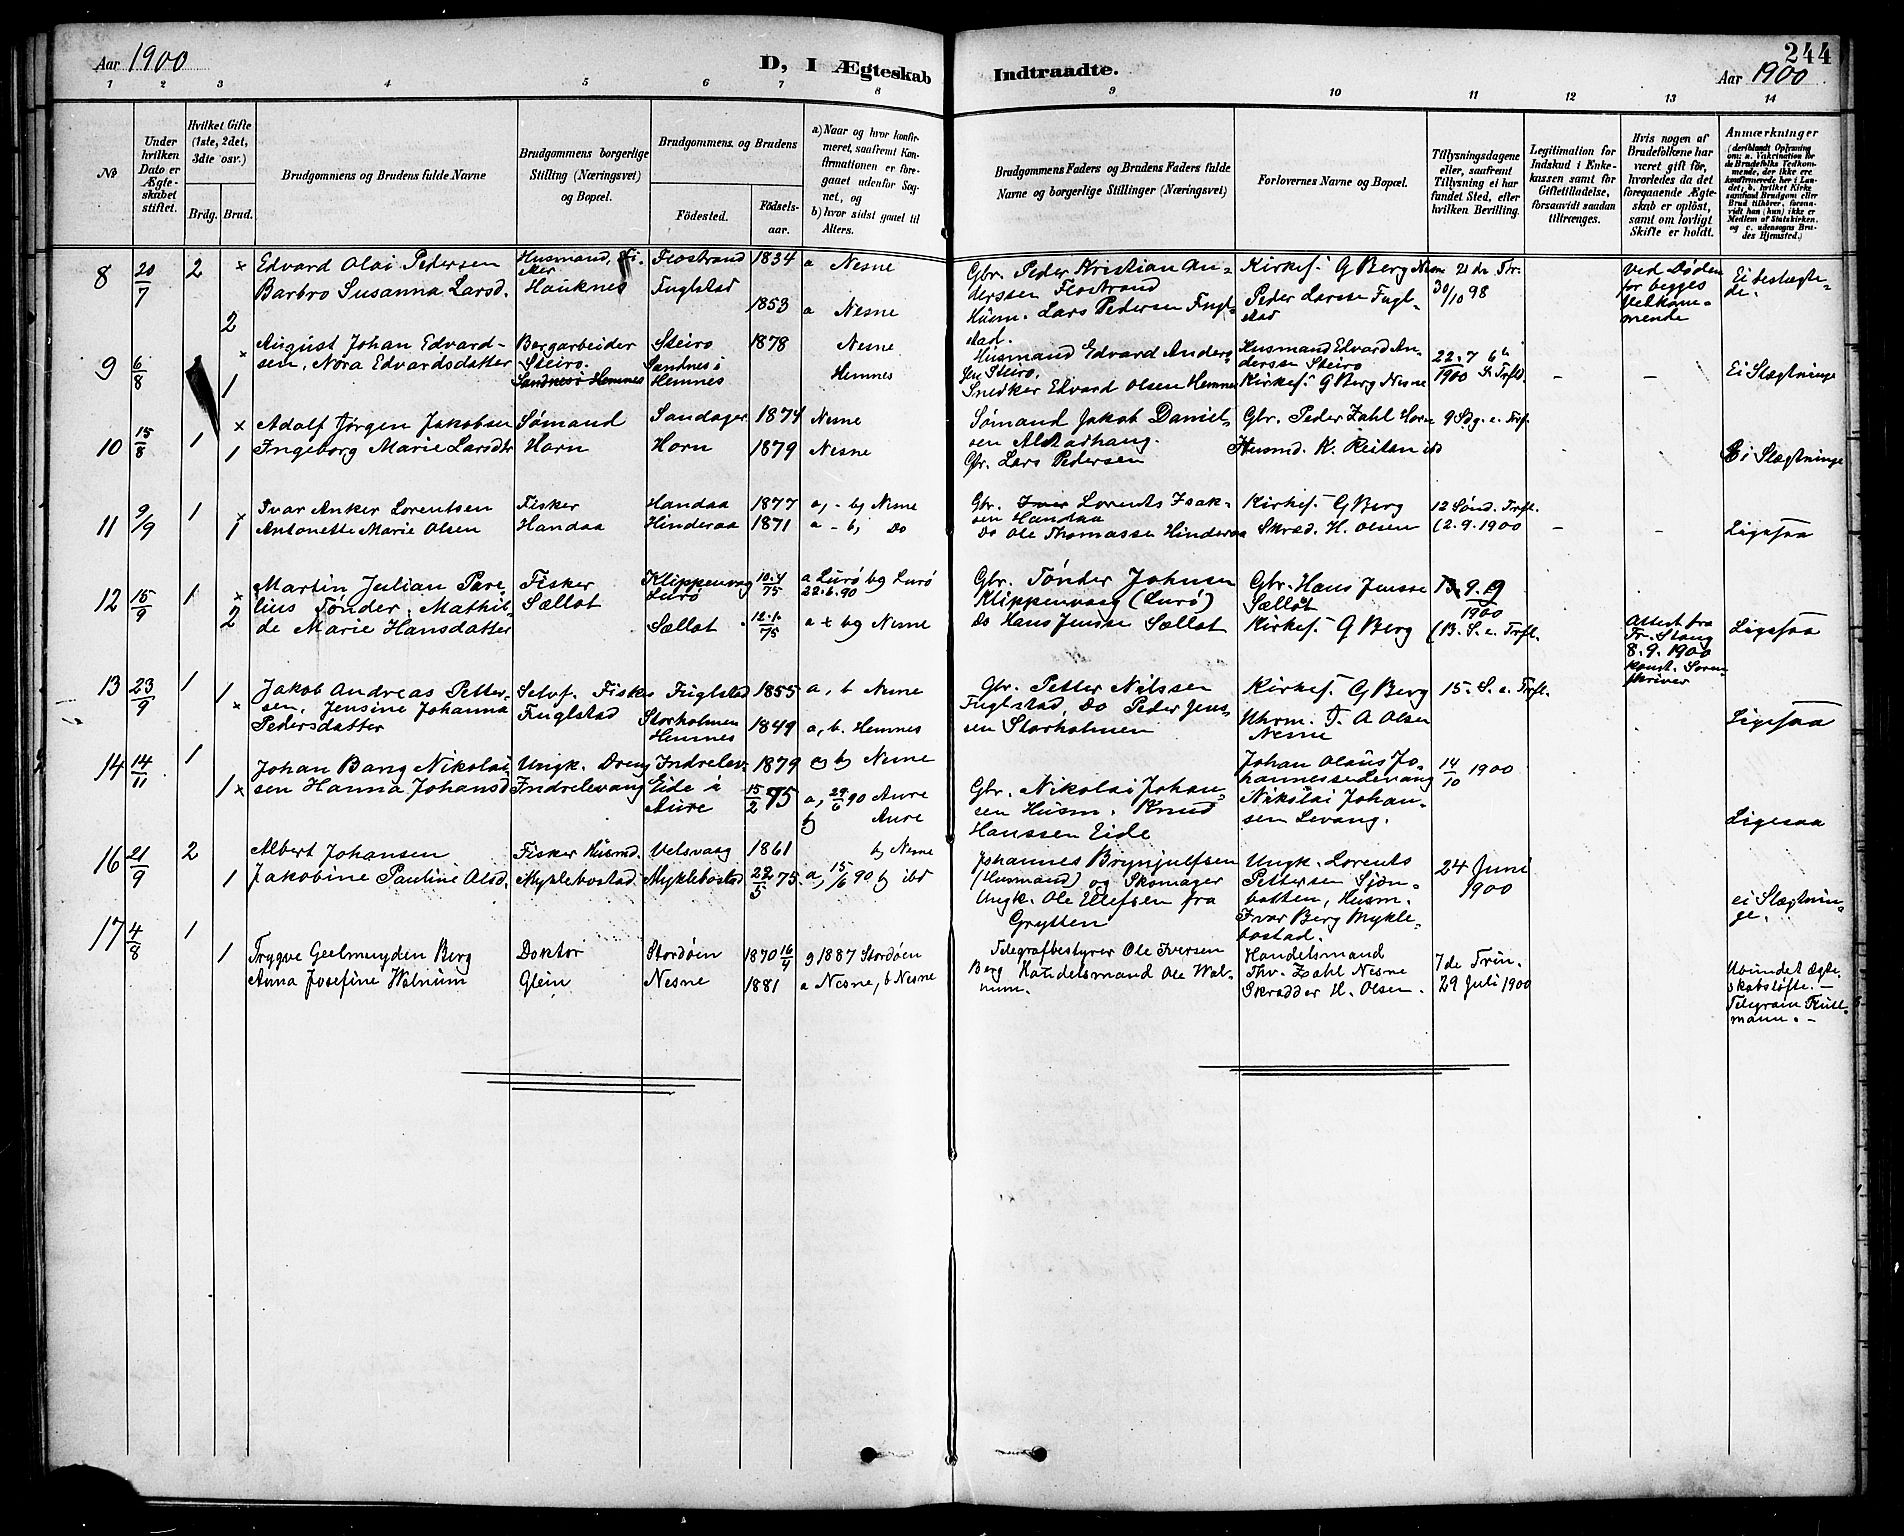 244
Aar 1900
D, I Ægteskab
Indtraadte.
Aar 1900
1 2 3 4 5 6 7 8 9 10 11 12 13 14
No
Under hvilken Dato er Ægteskabet stiftet.
Hvilket Gifte (1ste, 2det, 3die osv.)
Brdg. Brud.
Brudgommens og Brudens fulde Navne
Brudgommens borgerlige Stilling (Næringsvei) og Bopæl.
Brudgommens og Brudens
Fødested.
Fødsels-aar.
a) Naar og hvor konfirmeret, saafremt Konfirmationen er foregaaet udenfor Sognet, og
b) hvor sidst gaaet til Alters.
Brudgommens Faders og Brudens Faders fulde Navne og borgerlige Stillinger (Næringsvei)
Forlovernes Navne og Bopæl.
Tillysningsdagene eller, saafremt Tillysning ei har fundet Sted, efter hvilken Bevilling.
Legitimation for Indskud i Enkekassen samt for Giftetilladelse, forsaavidt saadan tiltrænges.
Hvis nogen af Brudefolkene har været gift før, hvorledes da det foregaaende Ægteskab er opløst, samt om lovligt Skifte er holdt.
Anmærkninger (deriblandt Oplysning om: a. Vakcination for de Brudefolks Vedkommende, der ikke ere konfirmerede her i Landet; b. hvilket Kirkesamfund Brudgom eller Brud tilhører, forsaavidt han (hun) ikke er Medlem af Statskirken, og c. udensogns Brudes Hjemsted.)
8 20/7 2 × Edvard Olai Pedersen Husmand, Fisker Flostrand 1834 a Nesne
2 Barbro Susanna Larsd. Hauknes Fuglstad 1853 a Nesne
Gbr. Peder Kristian Anderssen Flostrand
Husm. Lars Pedersen Fuglstad.
Kirkes. G Berg Nesne
Peder Larsen Fuglstad
21 de Tr.
30/10 98
Ved Døden for begges Vedkommende
Ei beslægtede.
9 6/8 × August Johan Edvardsen, Nora Edvardsdatter Bergarbeider Steiro. Steiro 1878 Nesne
1 Sandnes i Hemnes Sandnes i Hemnes Hemnes
Husmand Edvard Andersen Steiro.
Snedker Edvard Olsen Hemnes
Husmand Edvard Anderssen Steiro
Kirkes. G Berg Nesne
22.7 6te
1900 S. Trft.
– –
Ei Slægtninge
10 15/8 1 × Adolf Jørgen Jakobsen Sømand Sandager 1874 Nesne
1 Ingeborg Marie Larsdtr Horn Horn 1879 Nesne
Sømand Jakob Danielsen Alstadhaug.
Gbr. Lars Pedersen
Gbr. Peder Zahl Horn
Husmd. K. Reitan ibd
9 Sdg. e. Trf.
Ei Slægtninge
11 9/9 1 × Ivar Anker Lorentsen Fisker Handaa 1877 a, - b, Nesne
1 Antonette Marie Olsen Handaa Hinderaa 1871 a - b, Do
Gbr. Ivar Lorents Isaksen Handaa
Do Ole Thomasse Hinderaa
Kirkes. G Berg
Skræd. H. Olsen
12 Sønd. Trft.
(2. 9. 1900
– –
Ligesaa
12 15/9 1 × Martin Julian Parelius Tönder. Mathilde Marie Hansdatter Fisker Sællot Klippenvaag Lurö 10.4/75 a Lurö bg Lurö
22.6.90
2 Sællot 12.1./75 a + bg Nesne
Gbr. Tönder Johnsen Klippenvaag (Lurö)
Do Hans Jensse Sællot
Gbr. Hans Jensse Sællot
Kirkes. G Berg
9.9
1900
(13. S. e. Trft.
Attest fra Fr. Stang
8.9.1900
konst. Sorenskriver
Ligesaa
13 23/9 1 1 × Jakob Andreas Pettersen, Jensine Johanna Pedersdatter Selvf. Fisker Fuglstad Fuglstad 1855 a, b Nesne
Storholmen Hemnes 1849 a, b. Hemnes
Gbr. Petter Nilssen Fuglstad, Do Peder Jenssen Storholmen
Kirkes. G Berg
Uhrm. J. A Olsen Nesne
15. S. e. Trft.
Ligesaa
14 14/11 1 1 × Johan Bang Nikolaisen Hanna Johansd Ungk. Dreng Indrelevang Indrelev. 1879 b Nesne
Eide i Aure 15/2 75 a, 29/6 90 Aure
b Aure
Gbr. Nikolai Johansen Husm. Knud Hanssen Eide
Johan Olaus Johannessen Levang
Nikolai Johansen Levang.
14/10 1900
Ligesaa
16 21/9 2 Albert Johansen Fisker Husmd. Velsvaag 1861 b Nesne
1 Jakobine Pauline Olsd. Myklebostad. Myklebostad 22/5 75. a, 15/6 90 b ibd
Johannes Brynjulfsen (Husmand) og Skomager Ungk. Ole Ellefsen fra Grytten
Ungk. Lorents Pettersen Sjonbotten, Husm. Ivar Berg Myklebostad.
24 Juni 1900
ei Slægtninge.
17 4/8 1 Trygve Geelmuyden Berg Doktor Stordøen 1870 16/4 1887 Stordøen
1 Anna Josefine Walnum Glein Nesne 1881 a Nesne, b Nesne
Telegrafbestyrer Ole Iversen Berg Handelsmand Ole Walnum.
Handelsmand Thv. Zahl Nesne
Skrædder H. Olsen.
7de Trin.
29 Juli 1900
Ubundet Ægteskabsløfte. –
Telegram –